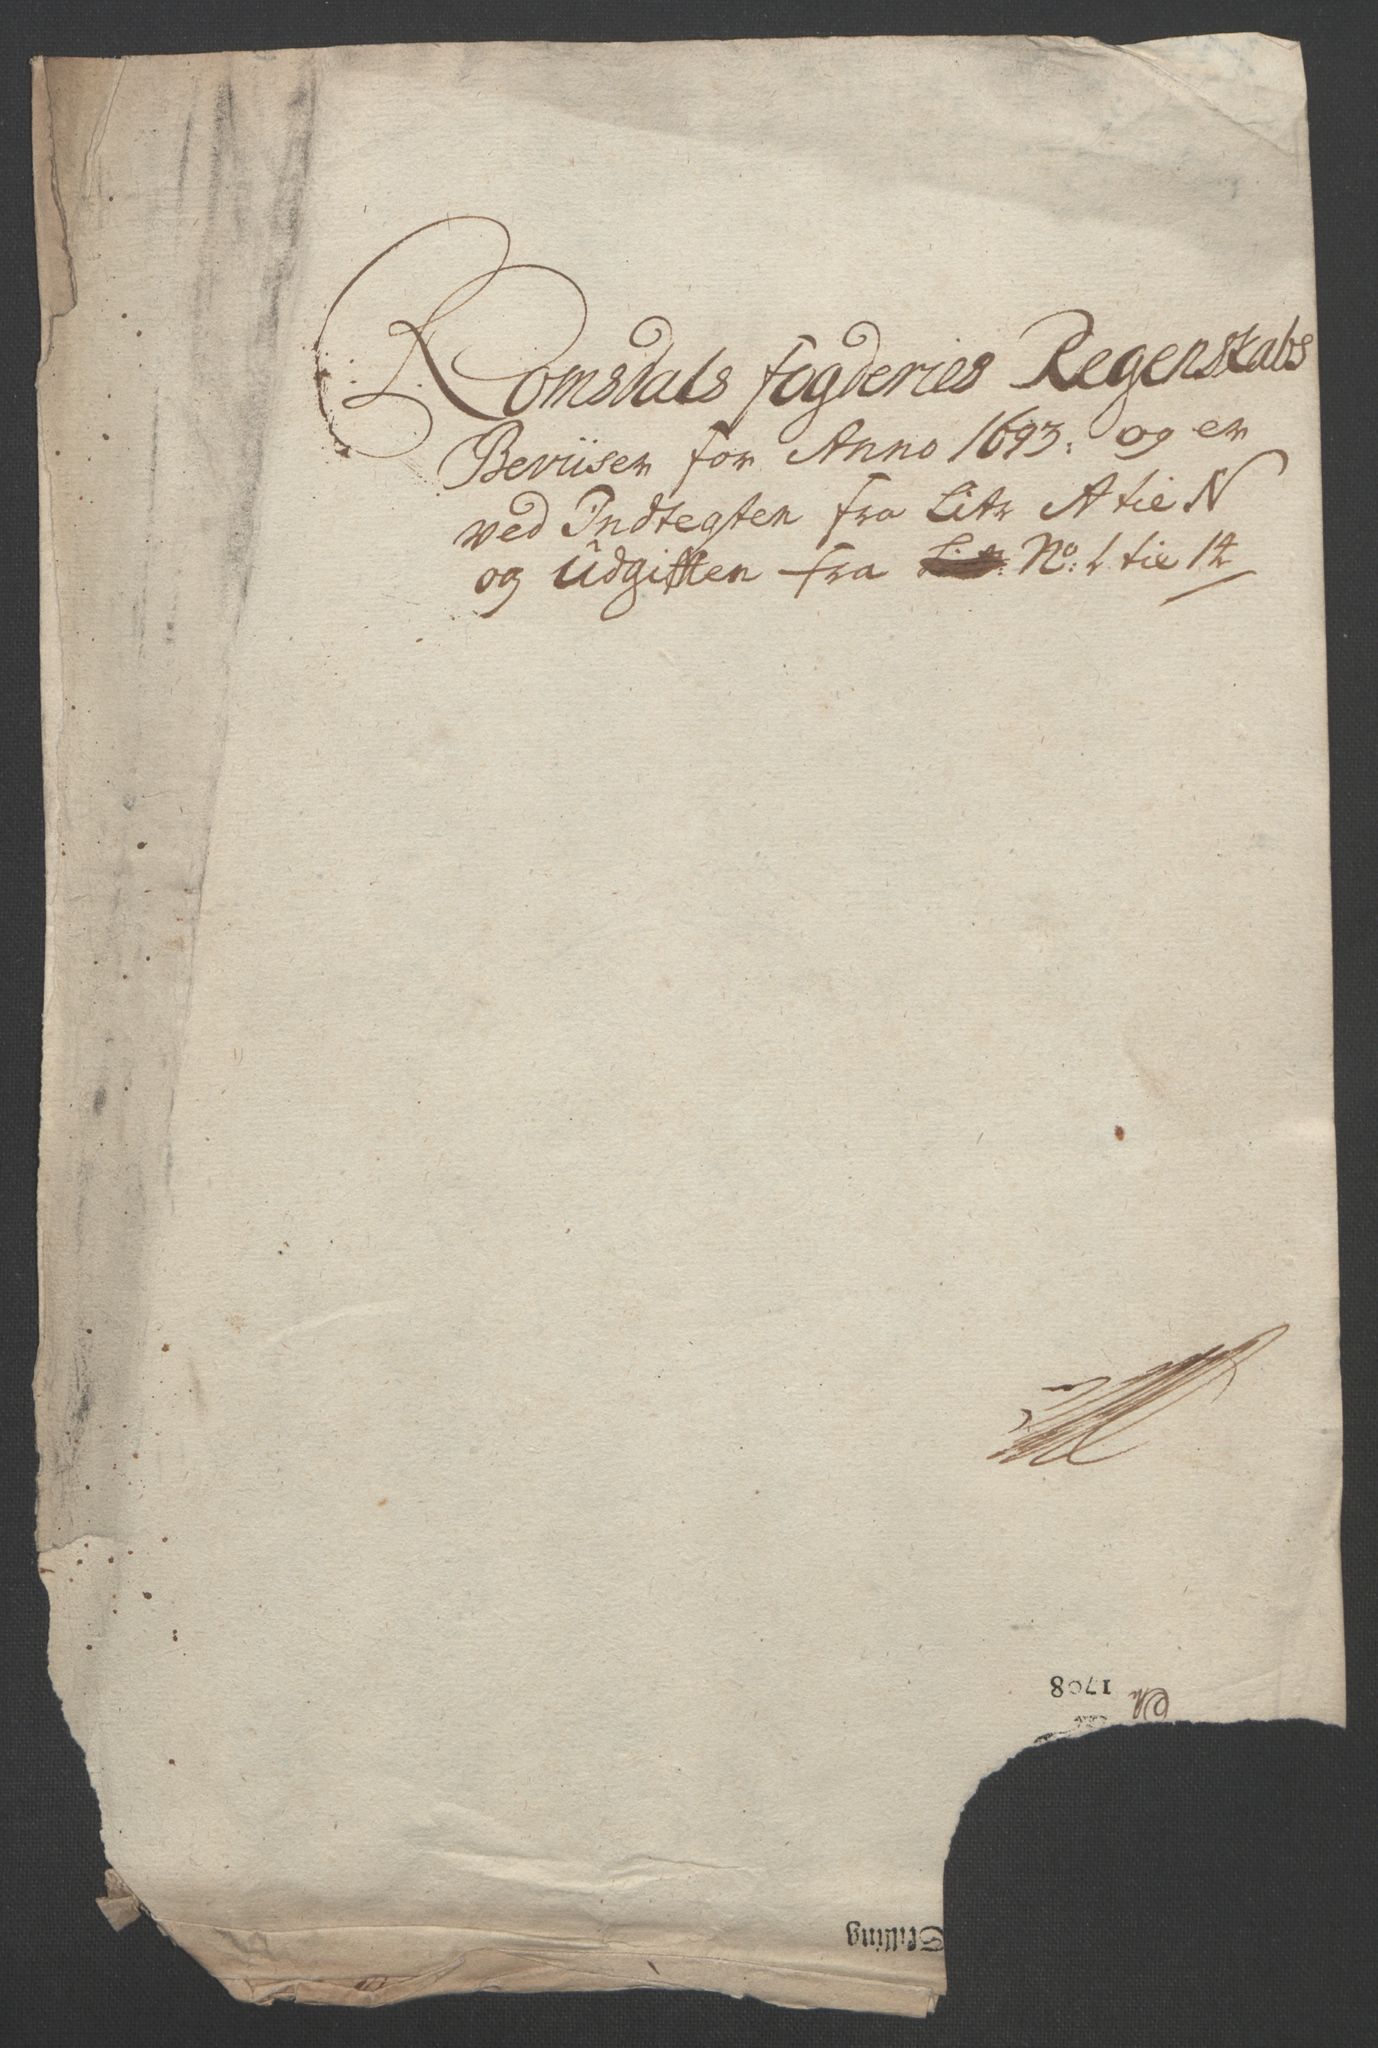 Romsdals fogderies Regenskabs
Beviiser for Anno 1693. og er
ved Indtegten fra Litr A tie N
og Udgiften fra Litr: No: 1 tie 14
1708
Skilling